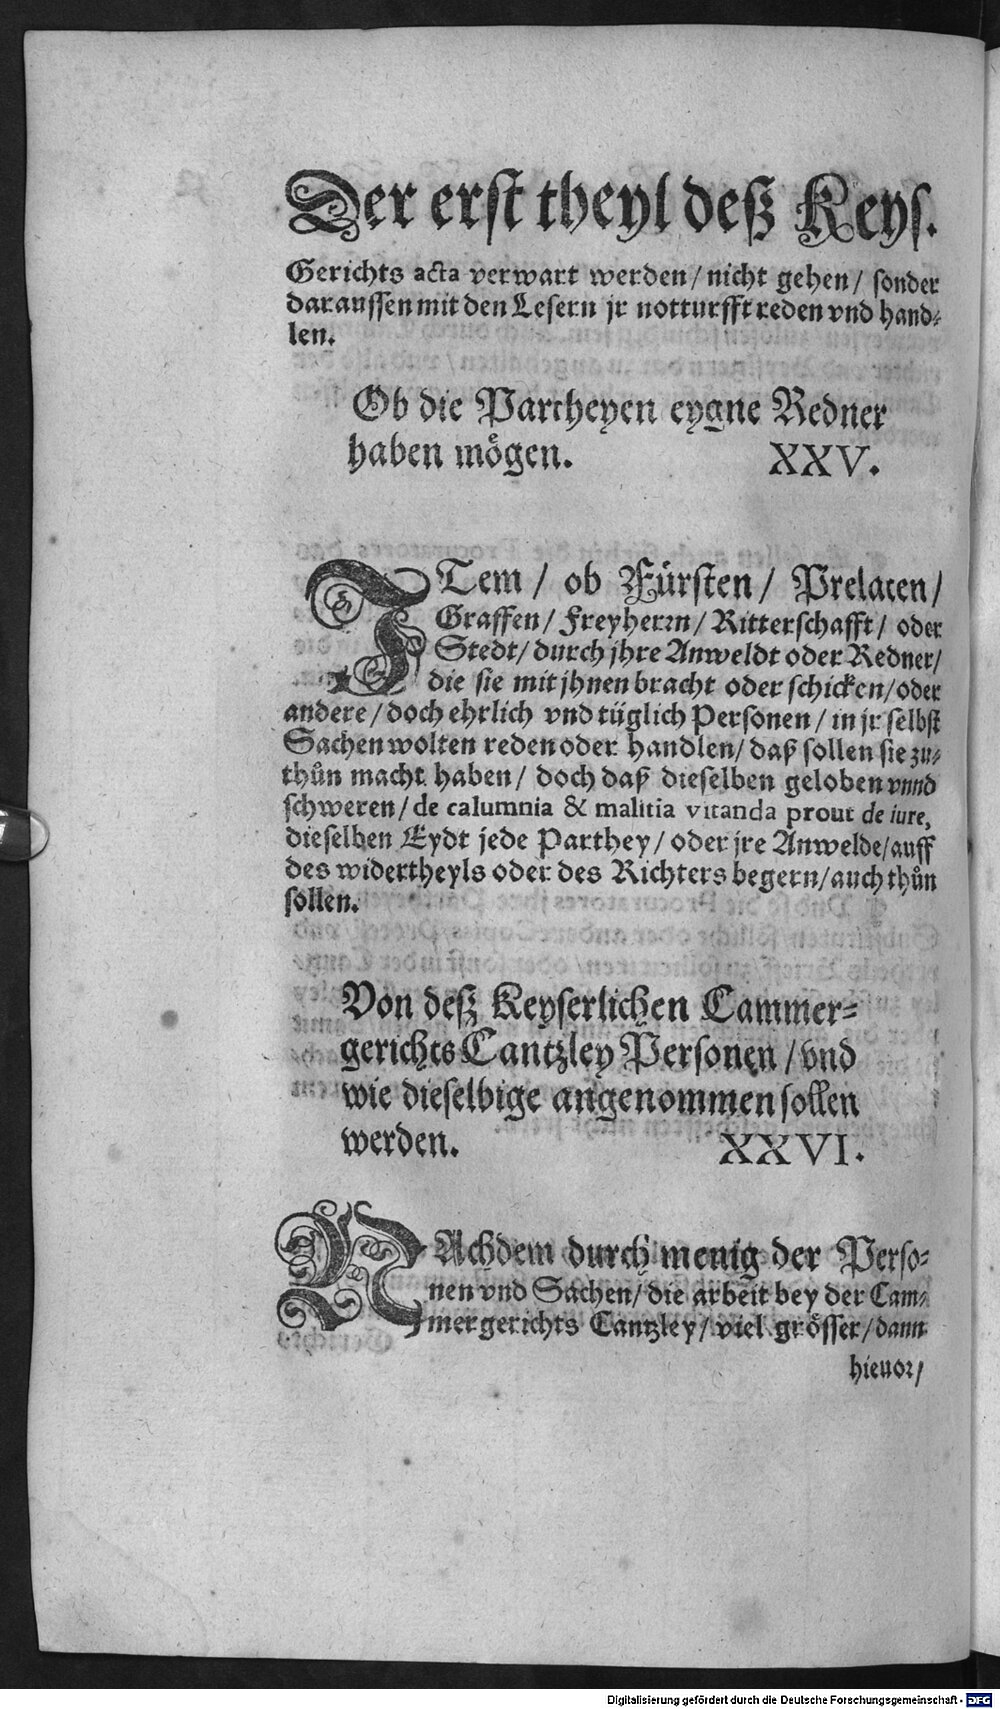 Der erst theyl deß Keys.
Gerichts acta verwart werden / nicht gehen / sonder
daraussen mit den Lesern jr notturfft reden vnd hand-
len.
Ob die Partheyen eygne Redner
haben mögen. XXV.
ITem / ob Fürsten / Prelaten /
Graffen / Freyherrn / Ritterschafft / oder
Stedt / durch jhre Anweldt oder Redner /
die sie mit jhnen bracht oder schicken / oder
andere / doch ehrlich vnd tüglich Personen / in jr selbst
Sachen wolten reden oder handlen / daß sollen sie zu-
thůn macht haben / doch daß dieselben geloben vnnd
schweren / de calumnia & malitia vitanda prout de iure,
dieselben Eydt jede Parthey / oder jre Anwelde / auff
des widertheyls oder des Richters begern / auch thůn
sollen.
Von deß Keyserlichen Cammer-
gerichts Cantzley Personen / vnd
wie dieselbige angenommen sollen
werden. XXVI.
NAchdem durch menig der Perso-
nen vnd Sachen / die arbeit bey der Cam-
mergerichts Cantzley / viel grösser / dann
hieuor /
Digitalisierung gefördert durch die Deutsche Forschungsgemeinschaft - DFG